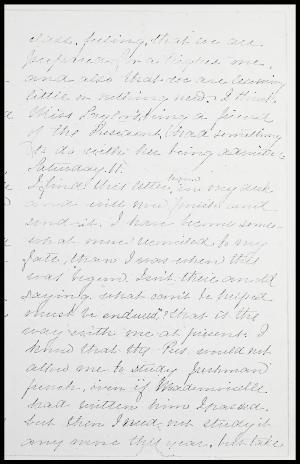 class, feeling, that we are
prepared for a higher one,
and also that we are learning
little or nothing new. I think
Miss being a friend
of the President, had something
to do with her being admitted.
Saturday. 11.
I find this letter, begun, in my desk
and will now finish and
send it. I have become some-
what more reconciled to my
fate, than I was when this
was begun. Isn't there an old
saying, what can't be helped
must be endured? that is the
way with me at present. I
know that the Pres. would not
allow me to study Freshman
french, even if Mademoiselle
had written him I passed.
but then I need not study it
any more this year, but take